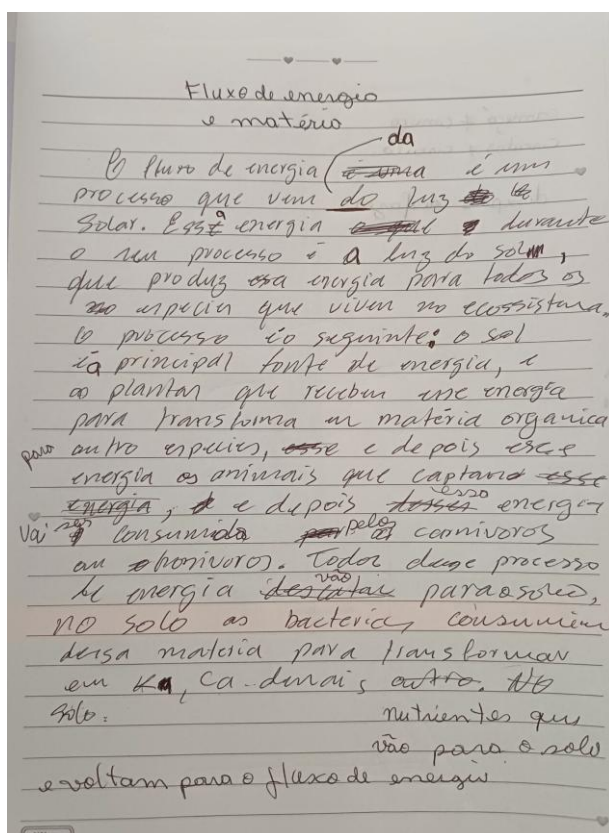 Fluxo de energia
e matéria
da
O fluxo de energia é um
processo que vem do luz
Solar. Essa energia durante
o seu processo é a luz do sol,
que produz essa energia para todos os
especies que vivem no ecossistema.
O processo é o seguinte: o sol
é a principal fonte de energia, e
as plantas que recebem esse energia
para transforma em matéria organica
para outro especies, e depois esse
energia os animais que captand
e depois esso energia
Vai ser consumida pelos carnivoros
ou onivoros. Todos desse processo
de energia vão para o solo,
no solo as bacterias consumiem
dessa materia para transformar
em K, Ca - demais
solo: nutrientes que
vão para o solo
e voltam para o fluxo de energia